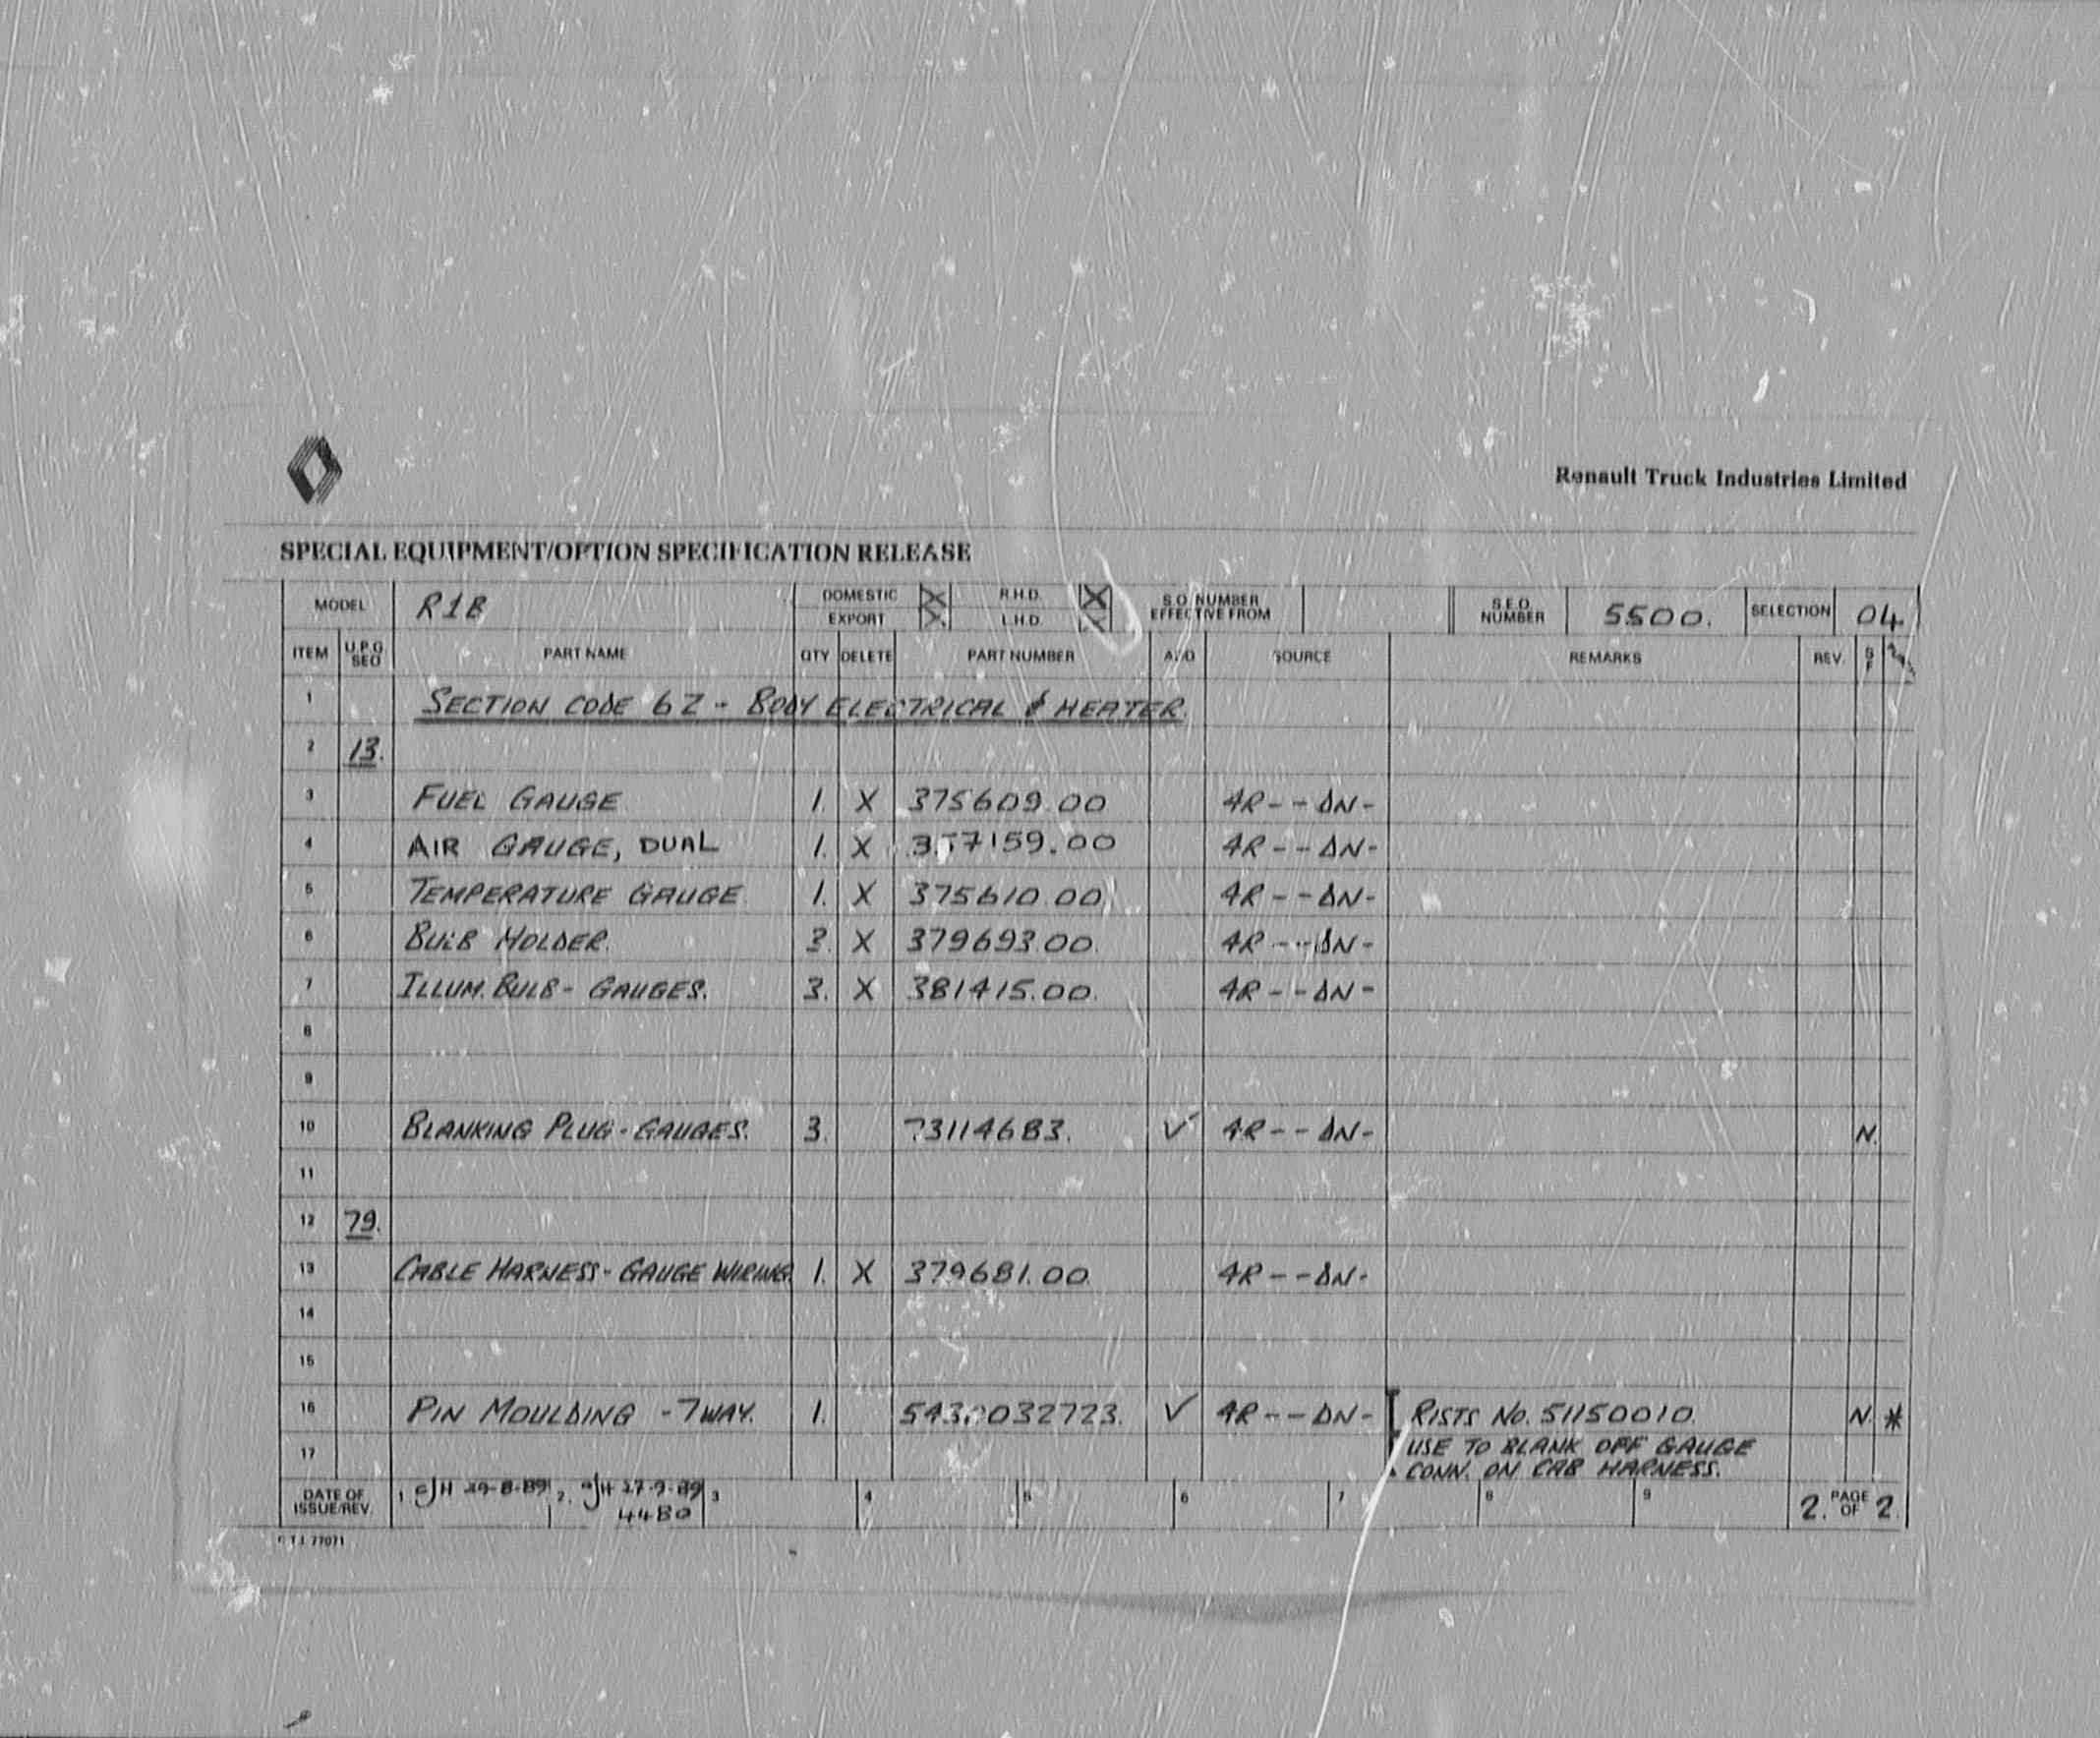 Renault Truck Industries Limited
SPECIAL EQUIPMENT/OPTION SPECIFICATION RELEASE
MODEL R1B DOMESTIC X R.H.D. X S.O. NUMBER EFFECTIVE FROM S.E.O. NUMBER 5500. SELECTION 04
EXPORT X L.H.D.
ITEM U.P.G SEQ PART NAME QTY DELETE PART NUMBER ADD SOURCE REMARKS REV. S F
1 SECTION CODE 6Z - BODY ELECTRICAL & HEATER.
2 13.
3 FUEL GAUGE 1. X 375609.00 4R--DN-
4 AIR GAUGE, DUAL 1. X 4R--DN-
5 TEMPERATURE GAUGE 1. X 375610.00 4R--DN-
6 BULB HOLDER. 3. X 379693.00. 4R--DN-
7 ILLUM. BULB - GAUGES. 3. X 381415.00. 4R--DN-
8
9
10 BLANKING PLUG - GAUGES. 3. 73114683. ✓ 4R--DN- N.
11
12 79.
13 CABLE HARNESS - GAUGE WIRING. 1. X 379681.00. 4R--DN-
14
15
16 PIN MOULDING - 7 WAY. 1. ✓ 4R--DN- RISTS NO. 51150010. N. *
17 USE TO BLANK OFF GAUGE
CONN. ON CAB HARNESS.
DATE OF ISSUE/REV. 1 29-8-89 2. 27-9-89 3 4 5 6 7 8 9 2. PAGE OF 2.
4480
77071